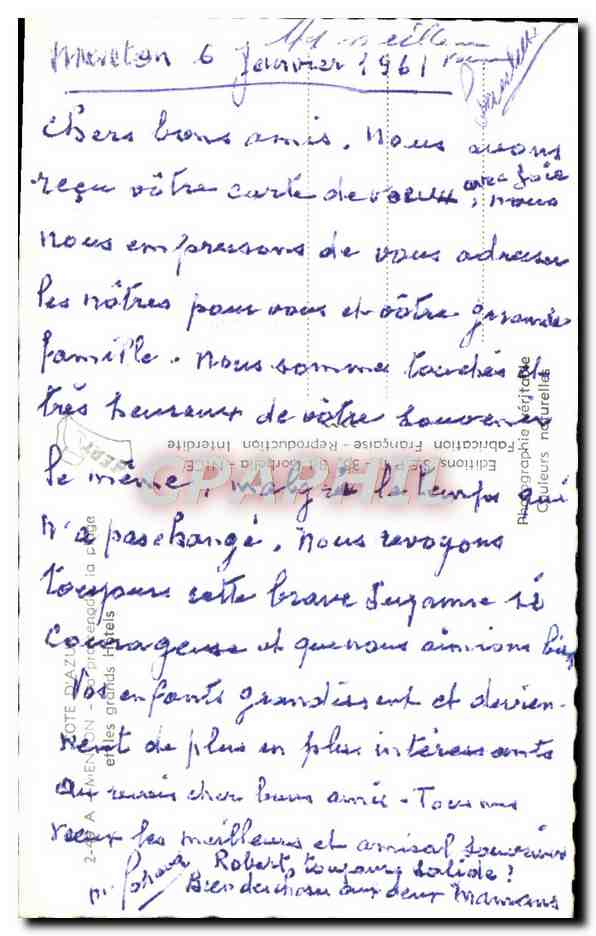 Menton 6 Janvier 1961
Chers bons amis. Nous avons
reçu vôtre carte de voeux, avec joie, nous
nous empressons de vous adresser
les nôtres pour vous et vôtre grande
famille. Nous somme touchés et
très heureux de vôtre souvenir
le même, malgré le temps qui
n'a pas changé. Nous revoyons
toujours cette brave Suzanne si
courageuse et que nous aimions bien
Vos enfants grandissent et devien-
nent de plus en plus intéressants
Au revoir cher bons amis - Tous nos
voeux les meilleurs et amical souvenir
Robert, toujours solide?
Bien des choses aux deux Mamans
CPAPHIL
Editions S.E.P.T. - NICE
Fabrication Française - Reproduction Interdite
Photographie véritable
Couleurs naturelles
COTE D'AZUR
MENTON - La promenade, la plage
et les grands Hotels